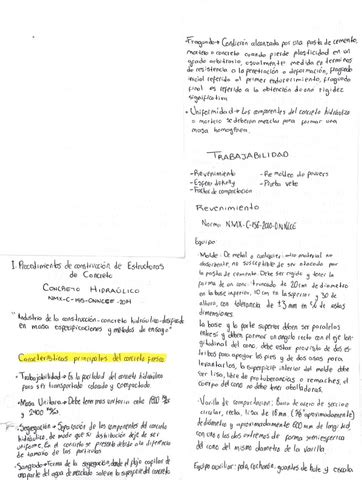 I. Procedimientos de construcción de Estructuras
de Concreto
CONCRETO HIDRAÚLICO
NMX-C-155-ONNCCE-2014
"Industria de la construcción-concreto hidráulico-
en masa especificaciones y métodos de ensayo"
Características principales del concreto fresco
• Trabajabilidad → Es la facilidad del concreto hidráulico
para ser transportado colocado y compactado.
• Masa Unitaria → Debe tener masa unitaria entre 1900
y 2400
• Segregación → Separación de los componentes del concreto
hidráulico, de modo que su distribución deje de ser
uniforme. En el concreto se presenta debido a la diferencia
de tamaño de las partículas
• Sangrado → Forma de la segregación donde el flujo capilar de
una parte del agua de mezclado aflora la superficie del concreto
• Fraguado → Condición alcanzada por una pasta de cemento,
mortero o concreto cuando pierde plasticidad en un
grado arbitrario, usualmente medida en términos
de resistencia a la penetración o deformación, fraguado
inicial referido al primer endurecimiento, fraguado
final es referido a la obtención de una rigidez
significativa
• Uniformidad → Los componentes del concreto hidráulico
o mortero se deben mezclar para formar una
masa homogénea.
TRABAJABILIDAD
- Revenimiento - Remoldeo de powers
- Esfera de Kelly - Prueba vebe
- Factor de compactación
Revenimiento
Norma NMX-C-156-2010-ONNCCE
Equipo
Molde: De metal o cualquier otro material no
absorbente, no susceptible de ser atacado por
la pasta de cemento. Debe ser rígido y tener la
forma de un cono truncado de 20cm de diámetro
en la base inferior, 10 cm en la superior y 30 de
altura, con tolerancia de ±3 mm en c/u de estas
dimensiones
La base y la parte superior deben ser paralelas
entre sí y deben formar un ángulo recto con el eje lon-
gitudinal del cono, debe estar provisto de dos es-
tribos para apoyar los pies y de dos asas para
levantarlo, la superficie interior del molde debe
ser lisa, libre de protuberancias o remaches, el
cuerpo del cono no debe tener abolladuras.
- Varilla de compactación: Barra de acero de sección
circular, recta, lisa de 16 mm (5/8" aproximadamente)
de diámetro y aproximadamente 600 mm de longitud,
con uno o los dos extremos de forma semiesférica
del mismo diámetro de la varilla.
Equipo auxiliar: pala, cucharón, guantes de hule y escala